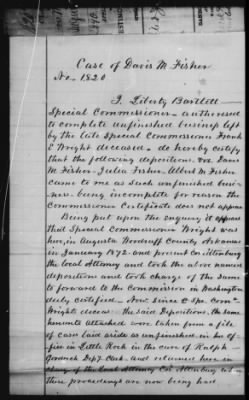 Case of Davis M. Fisher
No - 1820
I. Liberty Bartlett
Special Commissioner - authoresed
to complete unfinished business left
by the late Special Commissioner Frank
E Wright deceased - do hereby certify
that the following depositions. vs. Davis
M. Fisher. Julia Fisher. Albert M. Fisher
came to me as such unfinished busi-
ness. being incomplete for reason the
Commissioners Certificate does not appear
Being put upon the enquiry it appears
that Special Commissioner Wright was
here, in Augusta Woodruff County Arkansas
in January 1872 and present
the local Attorney and took the above named
depositions and took charge of the same
to forward to the Commission in Washington
duly certified - Now. Since Spe. Comr
Wright deceas. The said Depositions. the same
hereunto attached were taken from a file
of cases laid aside as unfinished, in his of-
fice in Little Rock in the care of Ralph
Dept. Clerk. and returned here in
charge of the Local Attorney
these proceedings are now being had